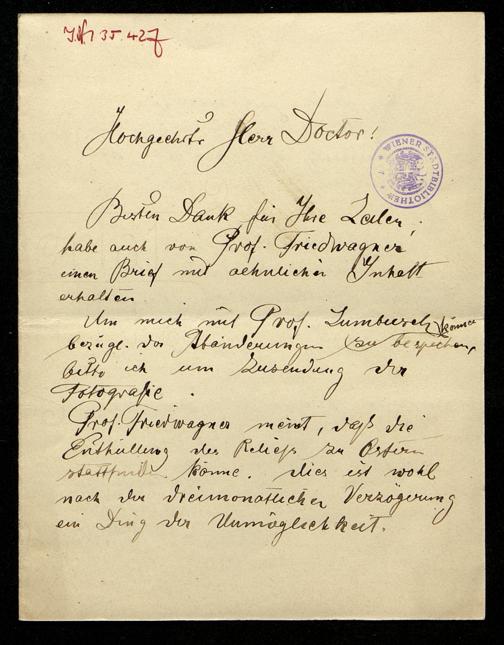 I.N. 35.427
Hochgeehrter Herr Doctor!
WIENER STADTBIBLIOTHEK
Besten Dank für Ihre Zeilen,
habe auch von Prof. Friedwagner
einen Brief mit aehnlichen Inhalt
erhalten
Um mich mit Prof. Zumbusch können
bezügl. der Abänderungen zu besprechen,
bitte ich um Zusendung der
Fotografie.
Prof. Friedwagner meint, daß die
Enthüllung des Reliefs zu Ostern
stattfinden könne. Dies ist wohl
nach der dreimonatlichen Verzögerung
ein Ding der Unmöglichkeit.